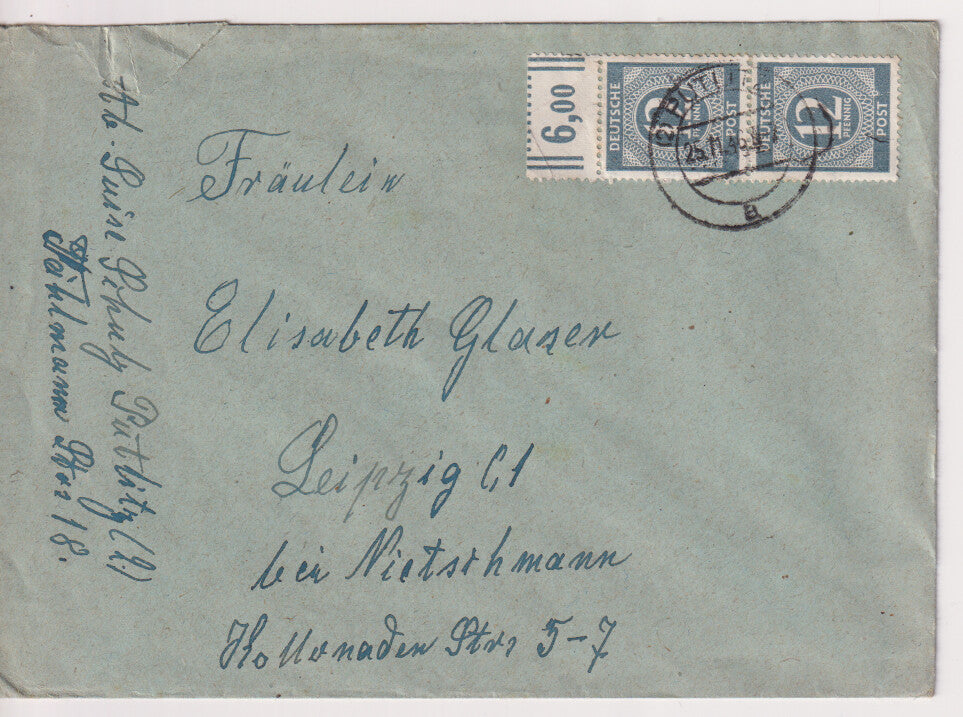 6,00
DEUTSCHE 12 PFENNIG POST
DEUTSCHE 12 PFENNIG POST
(2) PUTLITZ
a
Fräulein
Elisabeth Glazer
Leipzig C1
bei Nietschmann
Kollonaden Str. 5-7
Ab. Luise Schulz Putlitz (2)
Str. 18.